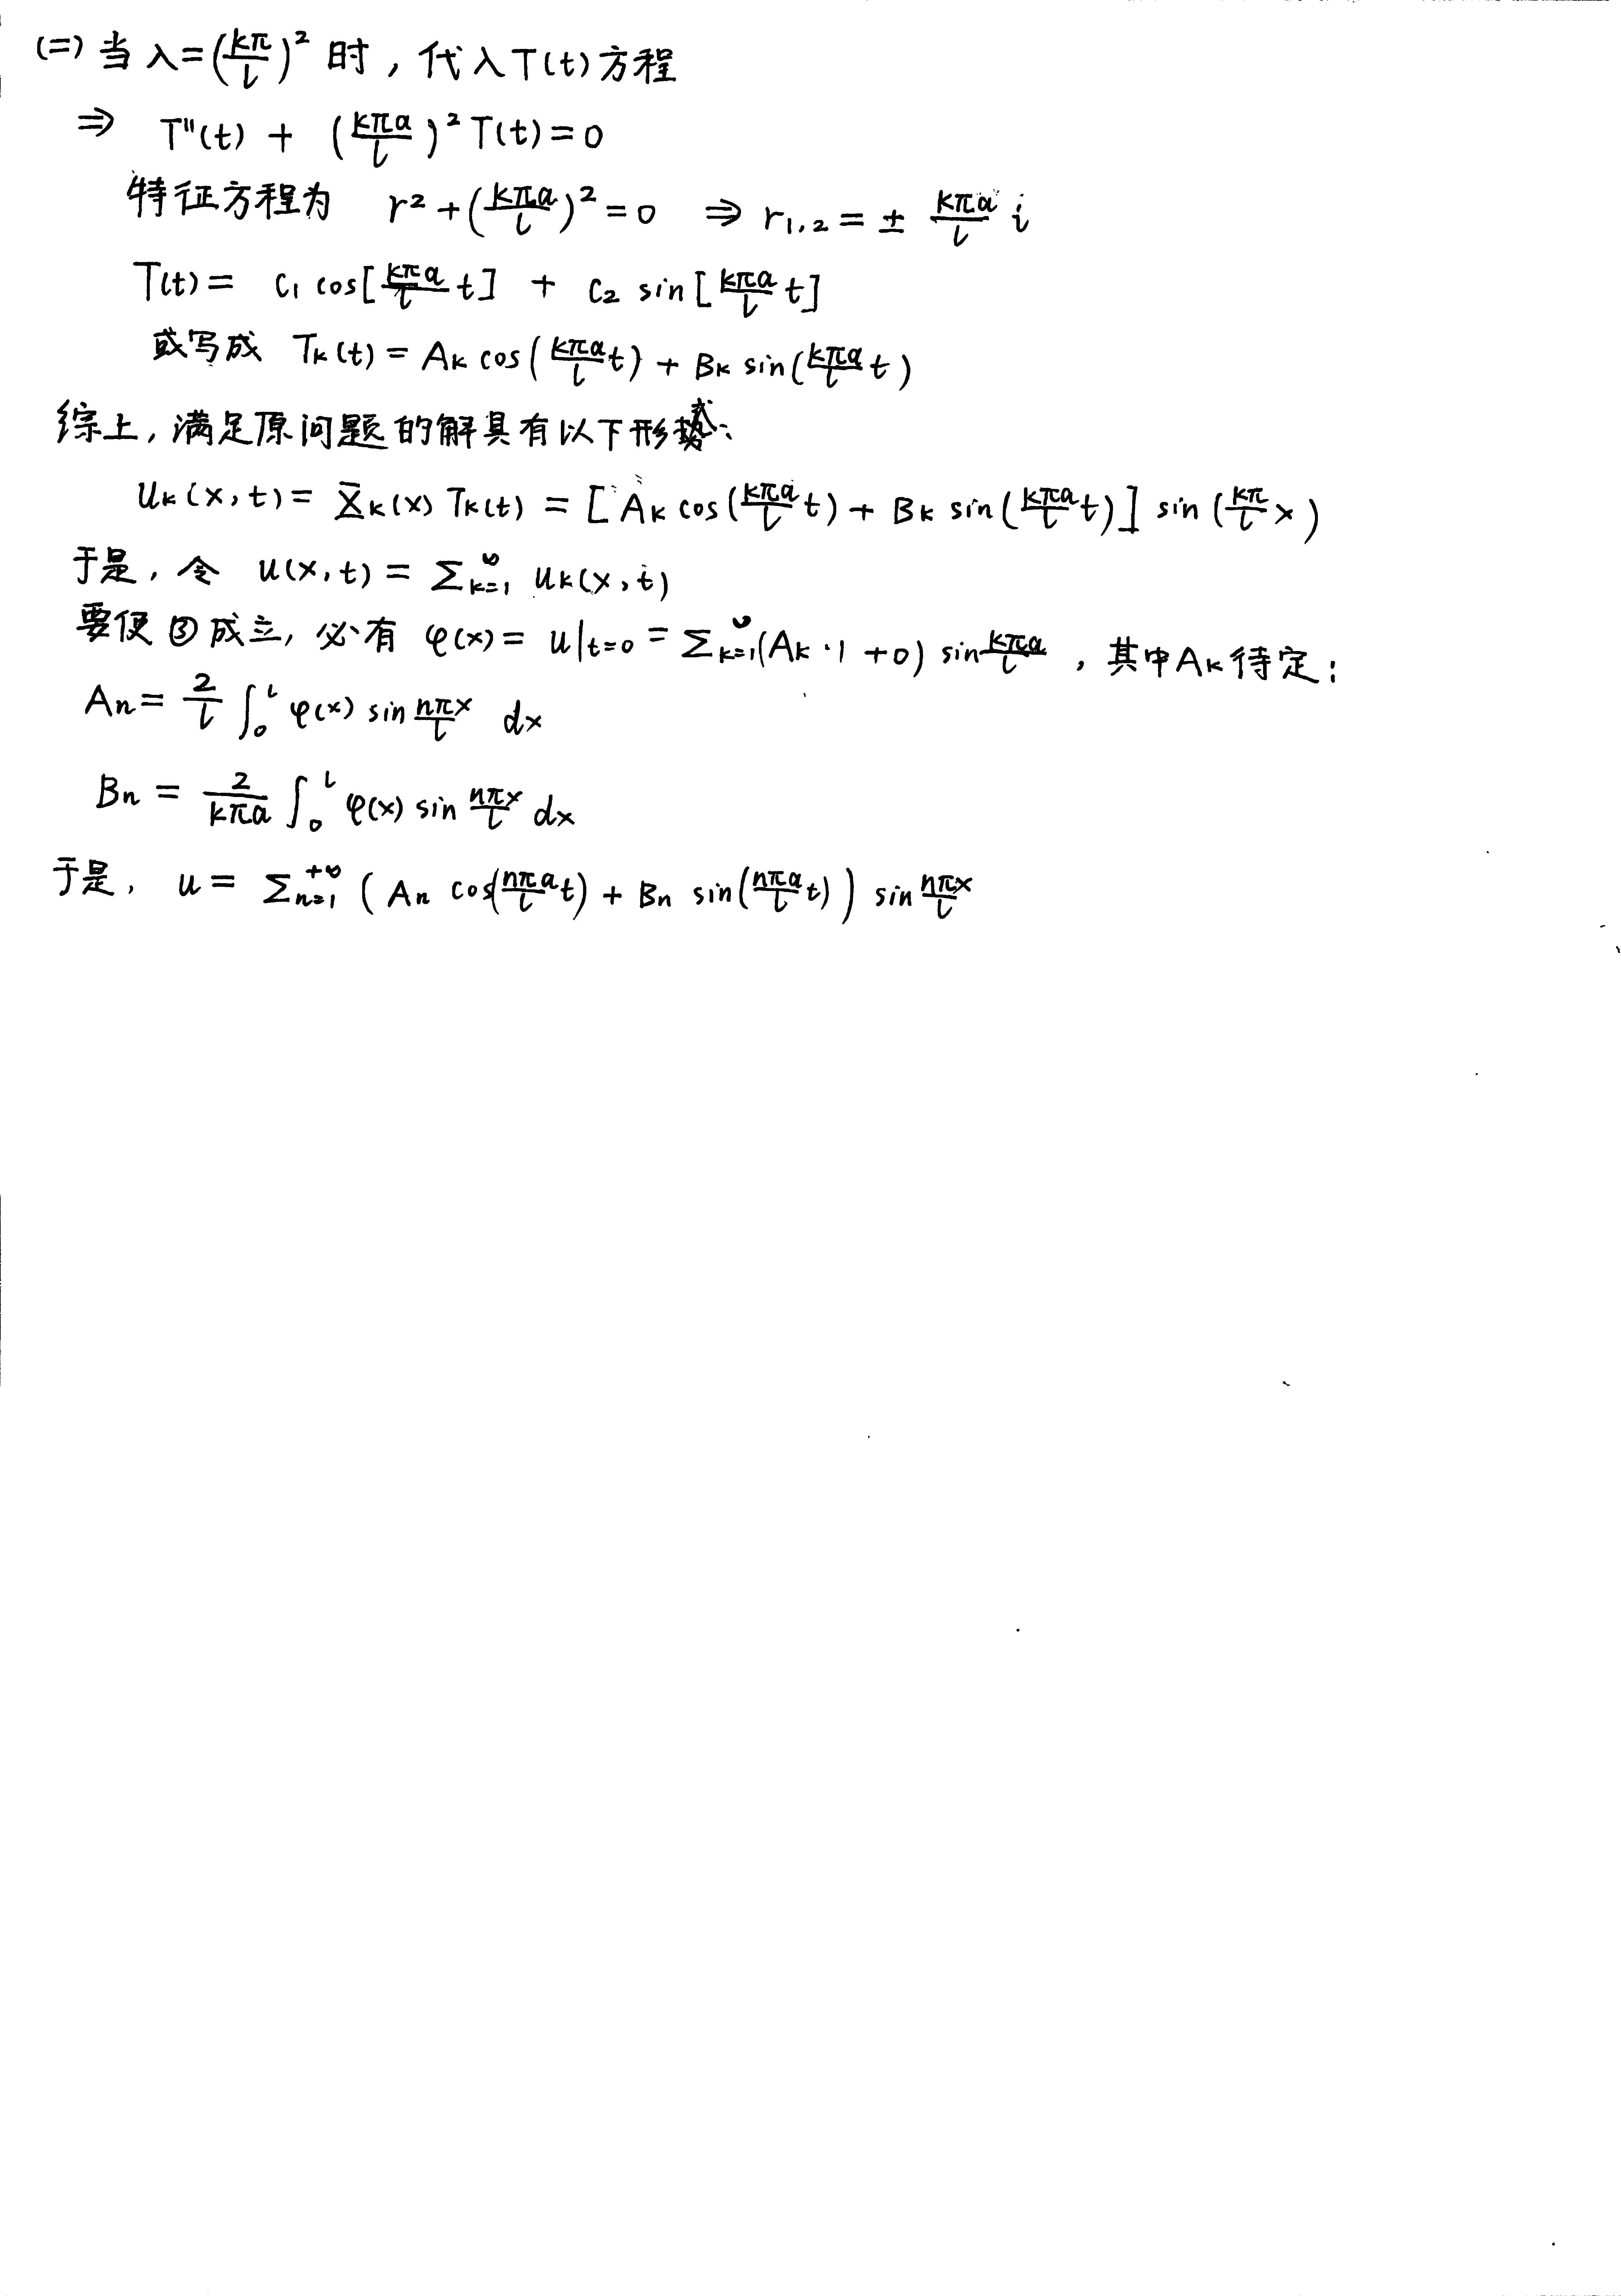 (二) 当 λ=(kπ/l)² 时, 代入T(t)方程
⇒ T''(t) + (kπa/l)² T(t)=0
特征方程为 r²+(kπa/l)²=0 ⇒ r₁,₂= ± kπa/l i
T(t)= C₁ cos[kπa/l t] + C₂ sin[kπa/l t]
或写成 Tₖ(t)= Aₖ cos(kπa/l t) + Bₖ sin(kπa/l t)
综上, 满足原问题的解具有以下形式:
uₖ(x,t)= Xₖ(x) Tₖ(t) = [Aₖ cos(kπa/l t) + Bₖ sin(kπa/l t)] sin(kπ/l x)
于是, 令 u(x,t) = Σₖ₌₁^∞ uₖ(x,t)
要使③成立, 必有 φ(x)= u|t=0 = Σₖ₌₁^∞(Aₖ·1+0) sin kπa/l , 其中Aₖ待定:
Aₙ= 2/l ∫₀^l φ(x) sin nπx/l dx
Bₙ = 2/kπa ∫₀^l φ(x) sin nπx/l dx
于是, u = Σₙ₌₁^+∞ (Aₙ cos(nπa/l t) + Bₙ sin(nπa/l t)) sin nπx/l